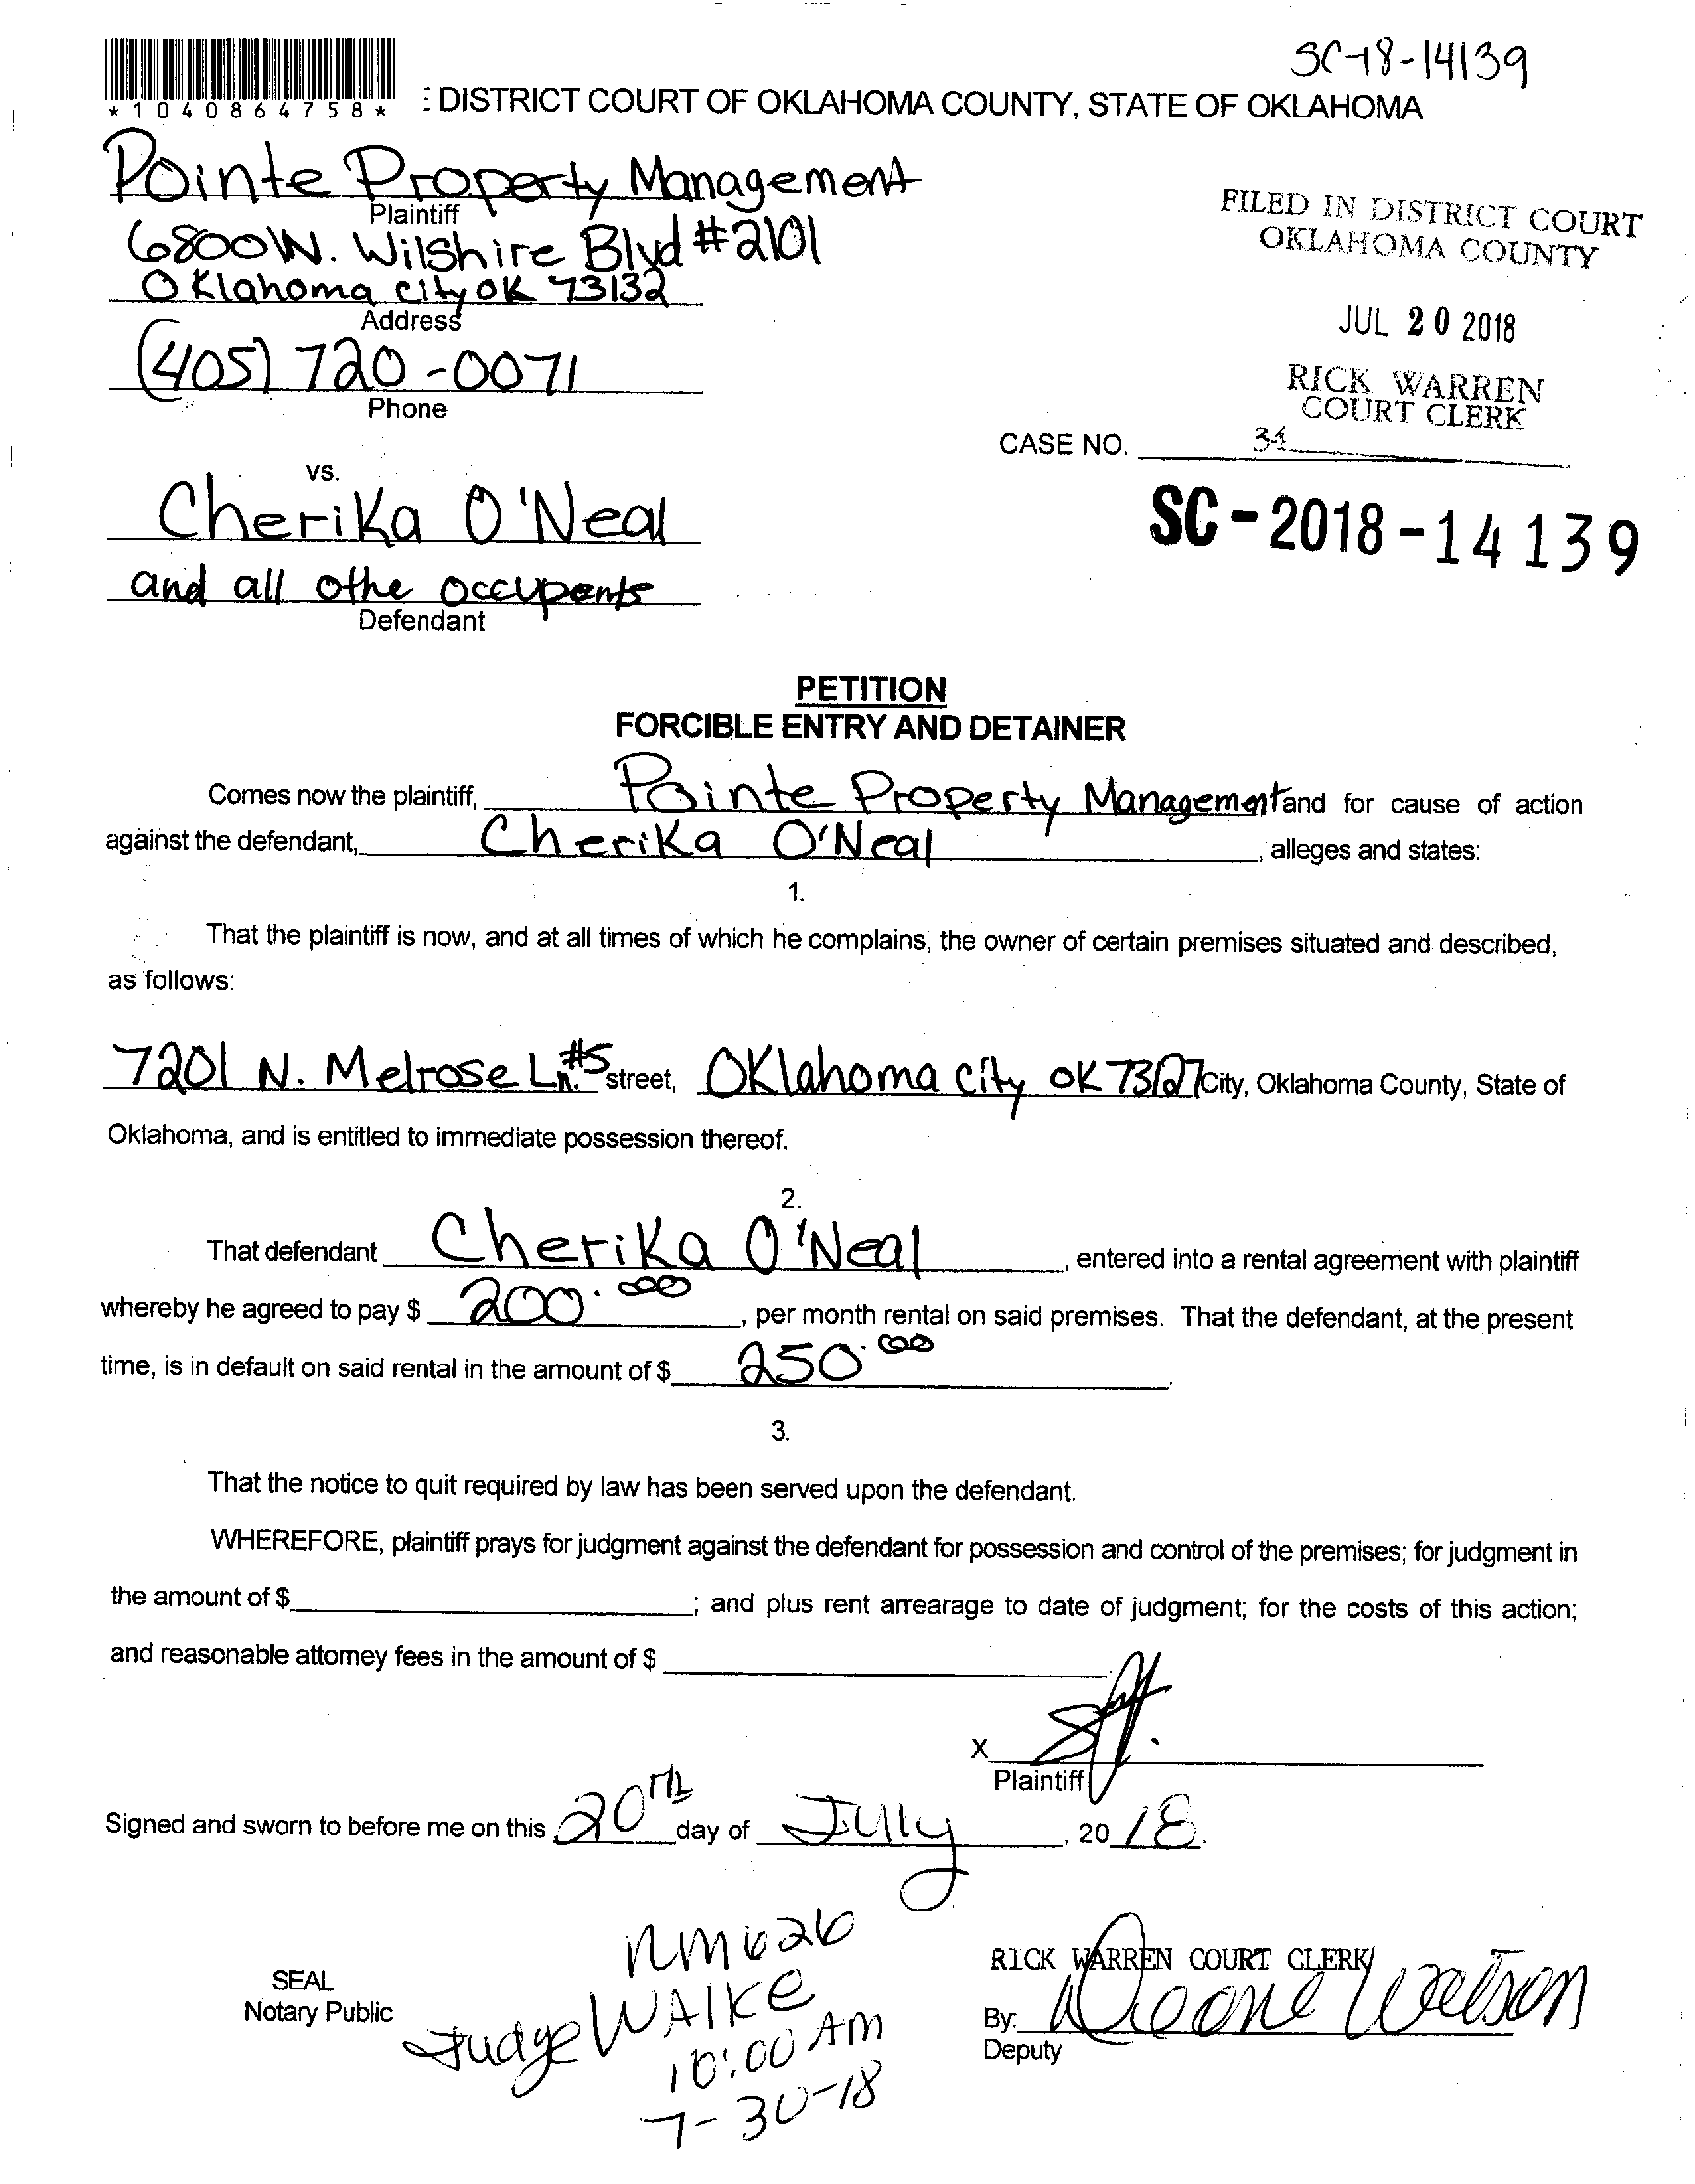 SC-18-14139
*1040864758*
: DISTRICT COURT OF OKLAHOMA COUNTY, STATE OF OKLAHOMA
Pointe Property Management
Plaintiff
6800 W. Wilshire Blvd #2101
Oklahoma city OK 73132
Address
(405) 720-0071
Phone
FILED IN DISTRICT COURT
OKLAHOMA COUNTY
JUL 20 2018
RICK WARREN
COURT CLERK
CASE NO. 34
vs.
SC-2018-14139
Cherika O'Neal
and all othe occupents
Defendant
PETITION
FORCIBLE ENTRY AND DETAINER
Comes now the plaintiff, Pointe Property Management and for cause of action
against the defendant, Cherika O'Neal, alleges and states:
1.
That the plaintiff is now, and at all times of which he complains, the owner of certain premises situated and described,
as follows:
7201 N. Melrose Ln. #5 street, Oklahoma city OK 73127 City, Oklahoma County, State of
Oklahoma, and is entitled to immediate possession thereof.
2.
That defendant Cherika O'Neal, entered into a rental agreement with plaintiff
whereby he agreed to pay $ 200.000, per month rental on said premises. That the defendant, at the present
time, is in default on said rental in the amount of $ 250.00
3.
That the notice to quit required by law has been served upon the defendant.
WHEREFORE, plaintiff prays for judgment against the defendant for possession and control of the premises; for judgment in
the amount of $ ; and plus rent arrearage to date of judgment; for the costs of this action;
and reasonable attorney fees in the amount of $
X
Plaintiff
Signed and sworn to before me on this 20th day of July, 20 18.
RM 626
SEAL
Notary Public
Judge WAlKe
10:00 AM
7-30-18
RICK WARREN COURT CLERK
By: Watson
Deputy